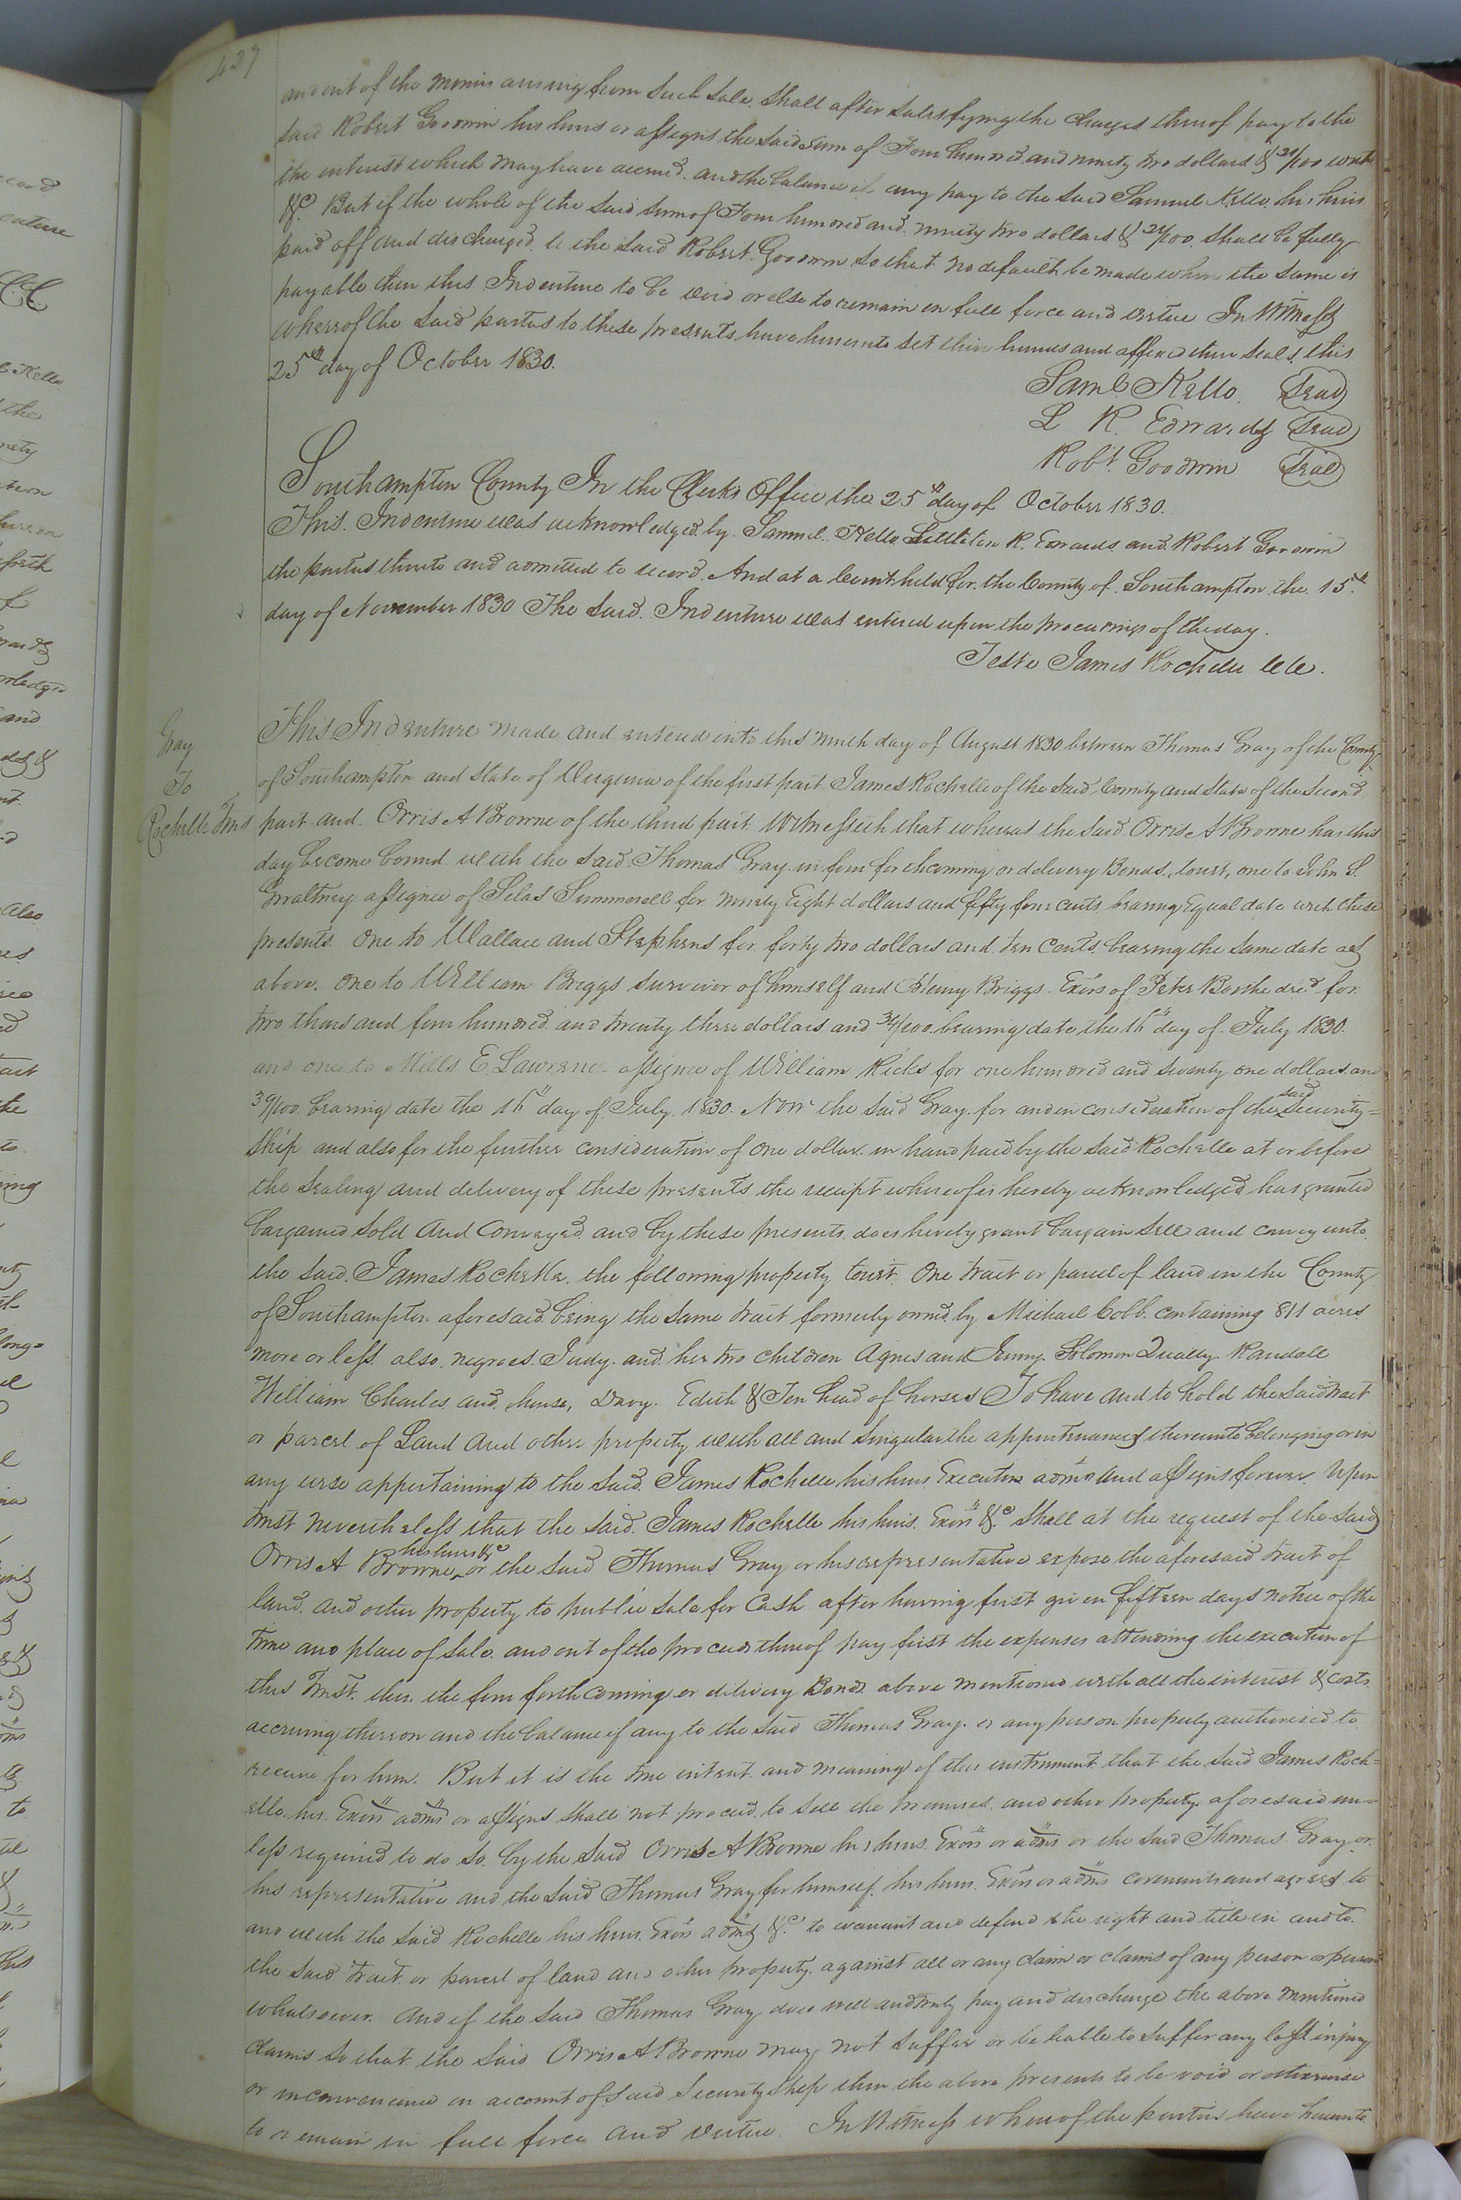 427
and out of the monies arising from such sale shall after satisfying the charges thereof pay to the
said Robert Goodwin his heirs or assigns the said sum of Four hundred and ninety two dollars & 21/100 with
the interest which may have accrued and the balance if any pay to the said Samuel Kello, his heirs
&c. But if the whole of the said sum of Four hundred and ninety two dollars & 21/100 shall be fully
paid off and discharged to the said Robert Goodwin so that no default be made when the same is
payable then this Indenture to be void or else to remain in full force and virtue In Witness
whereof the said parties to these presents have hereunto set their hands and affixed their seals this
25th day of October 1830.
Saml Kello. Seal
L R. Edwards Seal
Robt. Goodwin Seal
Southampton County In the Clerks Office the 25th day of October 1830.
This Indenture was acknowledged by Samuel Kello Littleton R. Edwards and Robert Goodwin
the parties thereto and admitted to record. And at a Court held for the County of Southampton the 15th
day of November 1830 The said Indenture was entered upon the proceedings of the day.
Teste James Rochelle CC.
Gray
To
Rochelle Trus
This Indenture made and entered into this ninth day of August 1830 between Thomas Gray of the County
of Southampton and State of Virginia of the first part James Rochelle of the said County and State of the Second
part and Orris A Browne of the third part Witnesseth that whereas the said Orris A Browne has this
day become bound with the said Thomas Gray in four forthcoming or delivery Bonds, towit, one to John S.
Gwaltney assignee of Silas Summerell for ninety Eight dollars and fifty four cents, bearing Equal date with these
presents. One to Wallace and Stephens for forty two dollars and ten Cents bearing the same date as
above. One to William Briggs Survivor of himself and Henry Briggs Exors of Peter Booth decd for
two thousand four hundred and twenty three dollars and 34/100 bearing date the 16th day of July 1830.
and one to Mills E. Lawrence assignee of William Hicks for one hundred and seventy one dollars and
39/100 bearing date the 16th day of July. 1830. Now the said Gray for and in consideration of the said Security=
ship and also for the further consideration of one dollar in hand paid by the said Rochelle at or before
the sealing and delivery of these presents the receipt whereof is hereby acknowledged has granted
bargained Sold And Conveyed and by these presents does hereby grant bargain Sell and convey unto
the said James Rochelle the following property towit. One tract or parcel of land in the County
of Southampton aforesaid being the same tract formerly owned by Michael Cobb containing 811 acres
more or less. also negroes Judy and her two children Agnes and Jenny. Solomon Qually Randall
William Charles and house, Davy. Edith & Ten head of horses To have and to hold the said tract
or parcel of Land and other property with all and singular the appurtenances thereunto belonging or in
any wise appertaining to the said James Rochelle his heirs Executors admrs and assigns forever. Upon
trust nevertheless that the said James Rochelle his heirs Exors &c shall at the request of the said
Orris A Browne his heirs &c or the said Thomas Gray or his representative expose the aforesaid tract of
land and other property to public sale for Cash after having first given fifteen days notice of the
time and place of sale and out of the proceeds thereof pay first the expenses attending the execution of
this trust. then the four forthcoming or delivery Bonds above mentioned with all the interest & costs
accruing thereon and the balance if any to the said Thomas Gray or any person properly authorised to
receive for him. But it is the true intent and meaning of this instrument that the said James Roch=
elle his Exors admrs or assigns shall not proceed to sell the premises and other property aforesaid un=
less required to do so by the said Orris A Browne his heirs Exors or admrs or the said Thomas Gray or
his representative and the said Thomas Gray for himself his heirs Exors or admrs covenants and agrees to
and with the said Rochelle his heirs Exors admrs &c to warrant and defend the right and title in and to
the said tract or parcel of land and other property against all or any claim or claims of any person or persons
whatsoever. And if the said Thomas Gray does well and truly pay and discharge the above mentioned
claims so that the said Orris A Browne may not suffer or be liable to suffer any loss injury
or inconvenience on account of said Securityship then the above presents to be void or otherwise
to remain in full force and virtue. In Witness whereof the parties have hereunto